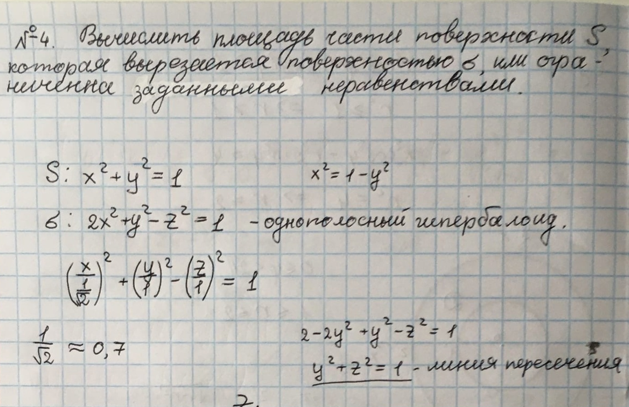 №4. Вычислить площадь части поверхности S,
которая вырезается поверхностью σ, или огра-
ниченна заданными неравенствами.
S: x² + y² = 1
x² = 1 - y²
σ: 2x² + y² - z² = 1 - однополосный гипербалоид.
(x/(1/√2))² + (y/1)² - (z/1)² = 1
1/√2 ≈ 0,7
2 - 2y² + y² - z² = 1
y² + z² = 1 - линия пересечения
z